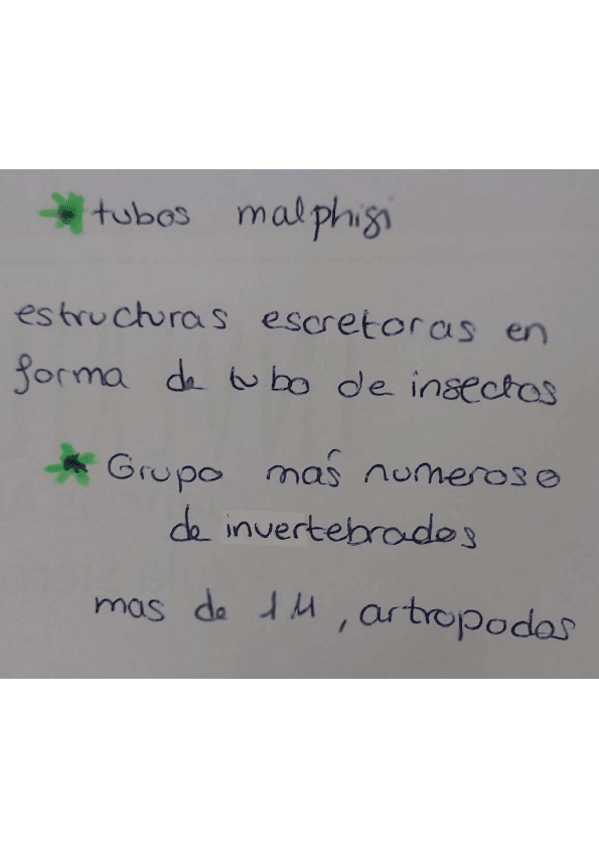 tubos malphigi
estructuras escretoras en
forma de tubo de insectos
Grupo más numeroso
de invertebrados
mas de 1M, artropodos